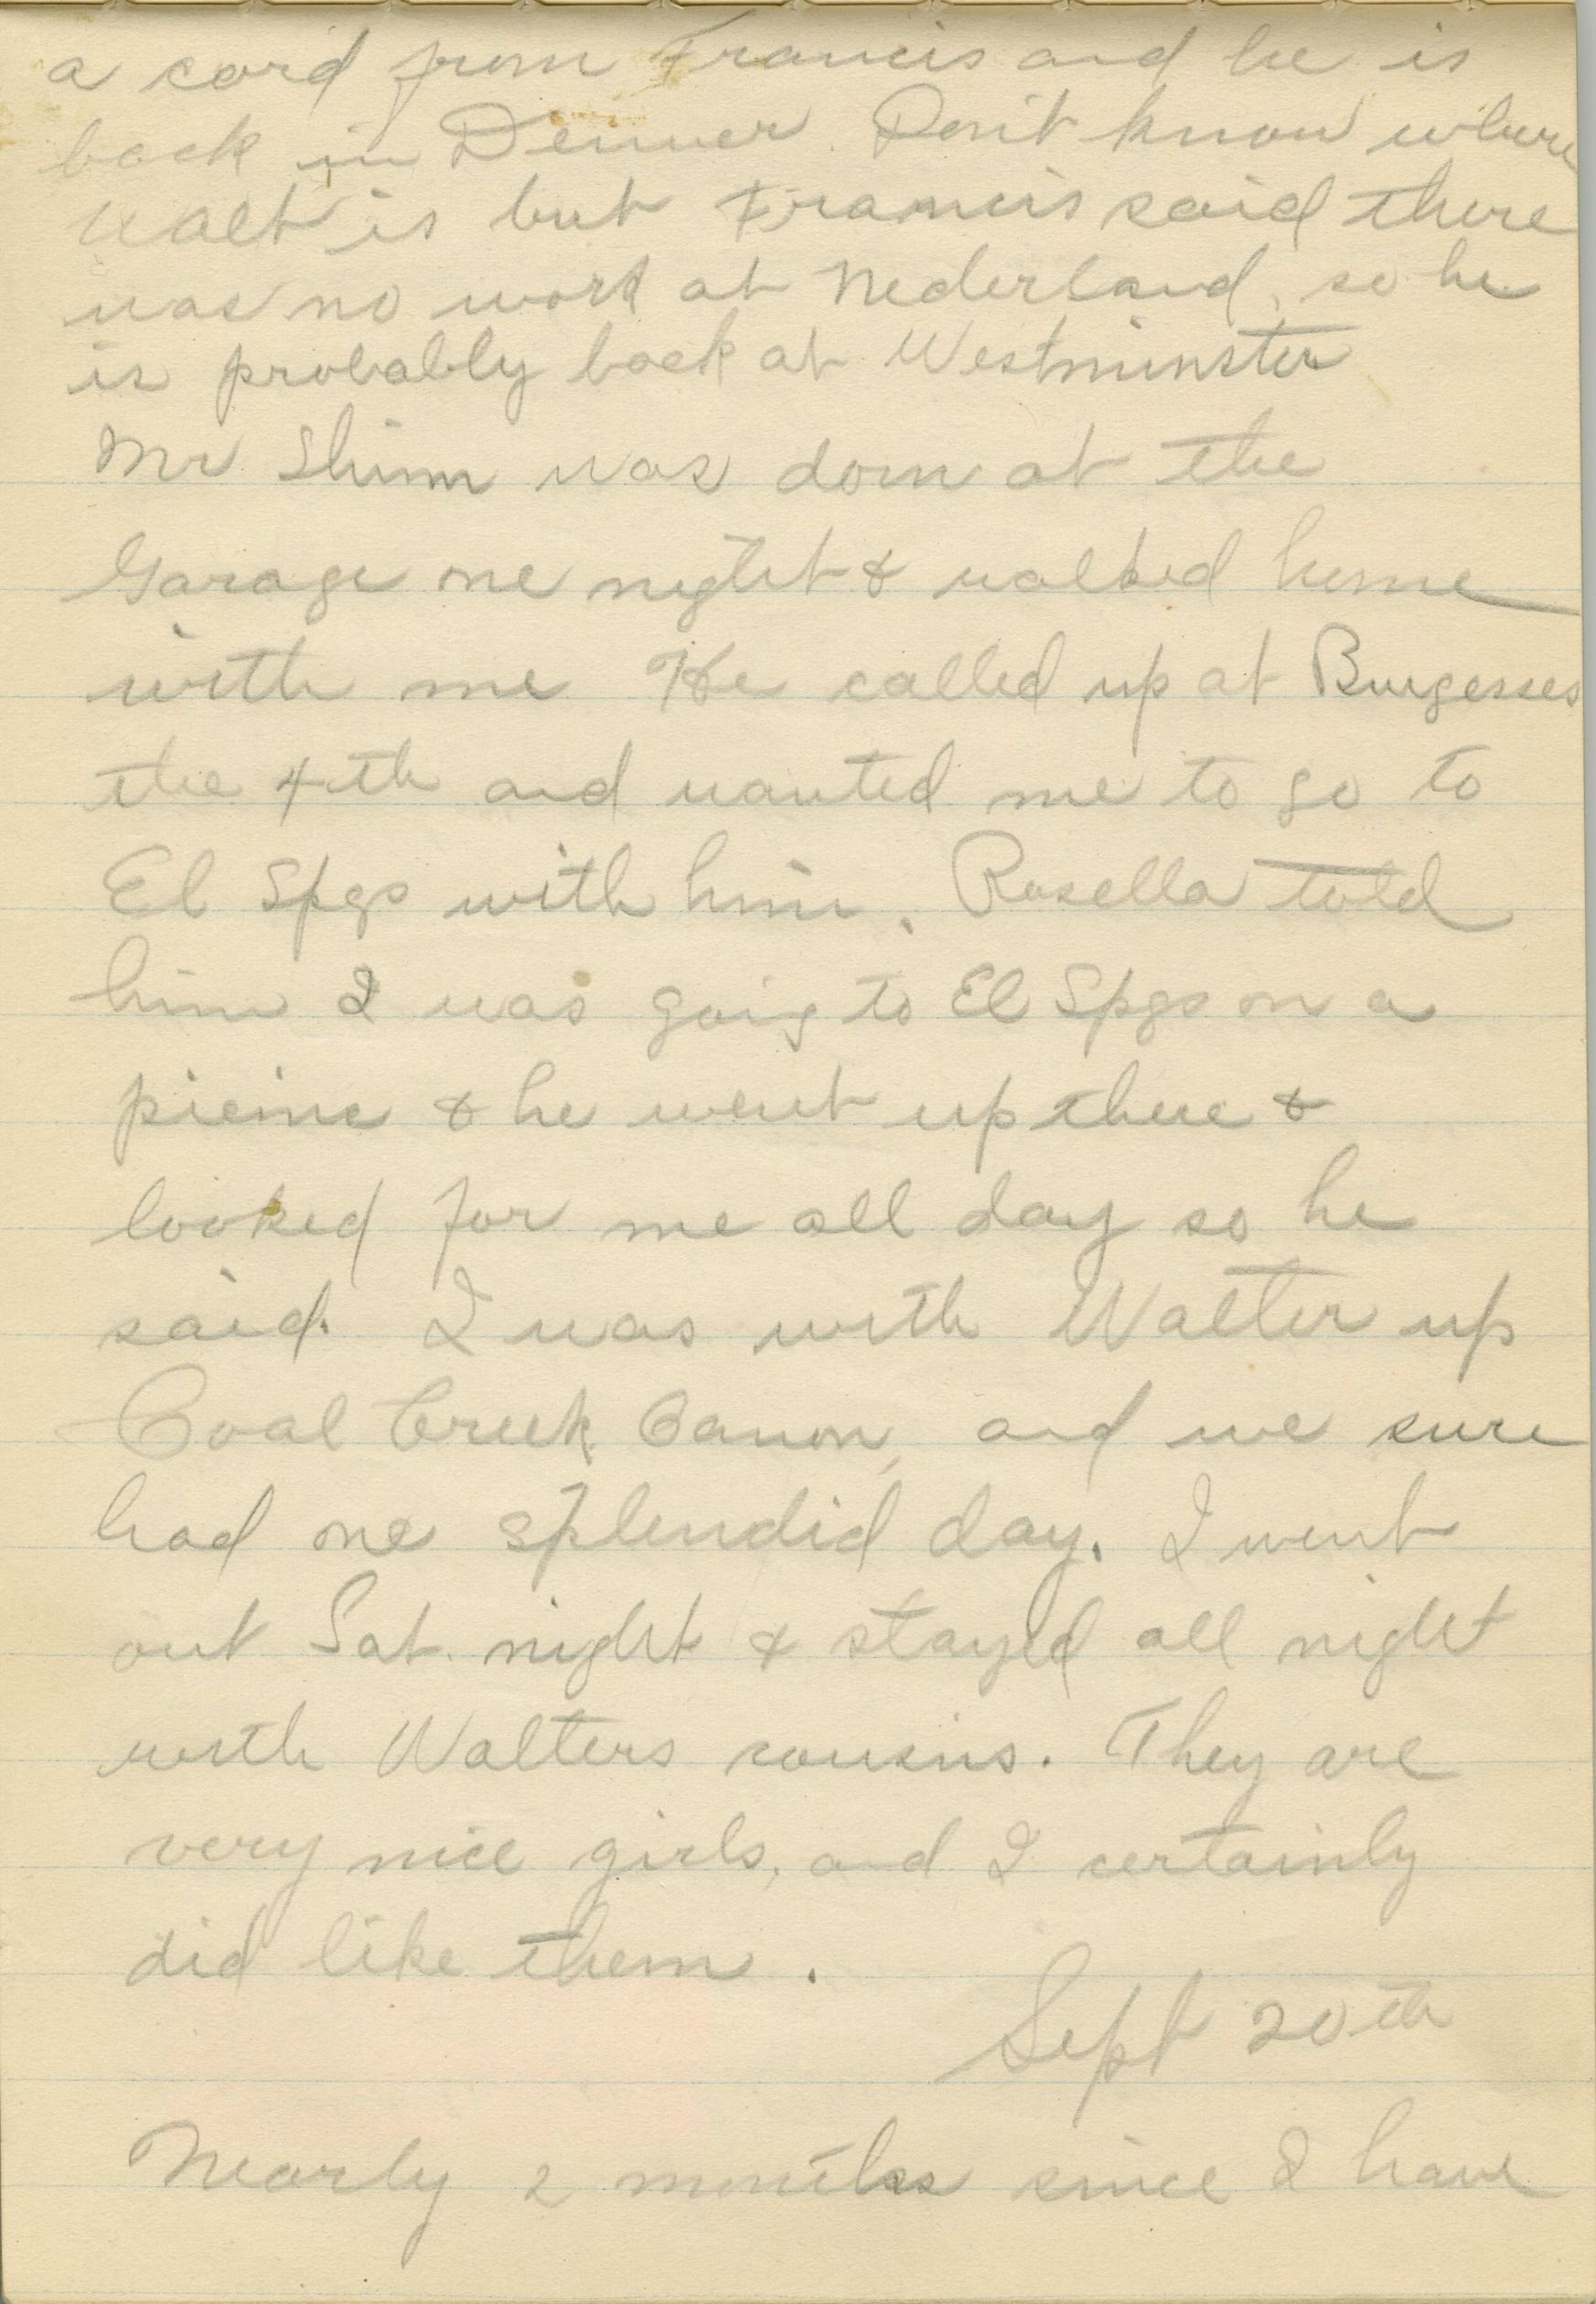 a card from Francis and he is
back in Denver. Don't know where
Walt is but Francis said there
was no work at Nederland, so he
is probably back at Westminster
Mr Shinn was down at the
Garage one night & walked home
with me He called up at Burgesses
the 4th and wanted me to go to
El Spgs with him. Rosella told
him I was going to El Spgs on a
picinc & he went up there &
looked for me all day so he
said. I was with Walter up
Coal Creek Canon, and we sure
had one splendid day. I went
out Sat. night & stayed all night
with Walters cousins. They are
very nice girls, and I certainly
did like them.
Sept 20th
Nearly 2 months since I have